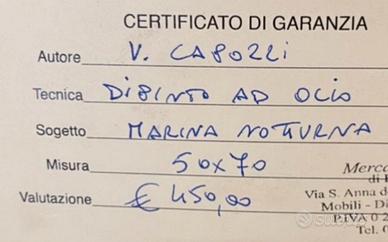 CERTIFICATO DI GARANZIA
Autore V. CAPOZZI
Tecnica DIPINTO AD OLIO
Sogetto MARINA NOTTURNA
Misura 50x70
Valutazione € 450,00
Merca
di
Via S. Anna d
Mobili - D
P.IVA 0 2
Tel.
subito